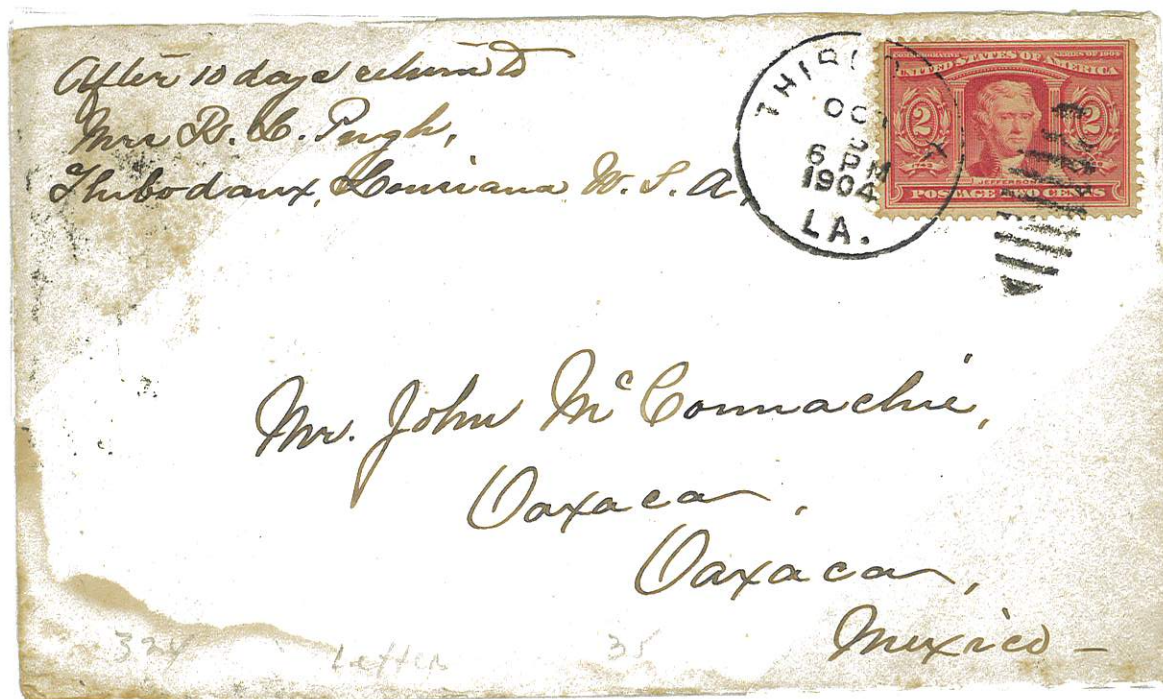 After 10 days return to
Mrs R. L. Pugh,
Thibodaux, Louisiana U. S. A.
OCT
6 PM
1904
LA.
COMMEMORATIVE SERIES OF 1904
UNITED STATES OF AMERICA
2 2
JEFFERSON
POSTAGE TWO CENTS
Mr. John McConnachie,
Oaxaca,
Oaxaca,
Mexico —
324 Letter 35